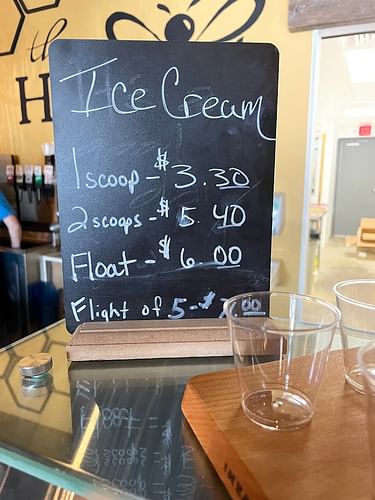 the
H
Ice Cream
1 scoop - $3.30
2 scoops - $5.40
Float - $6.00
Flight of 5 - $ .00